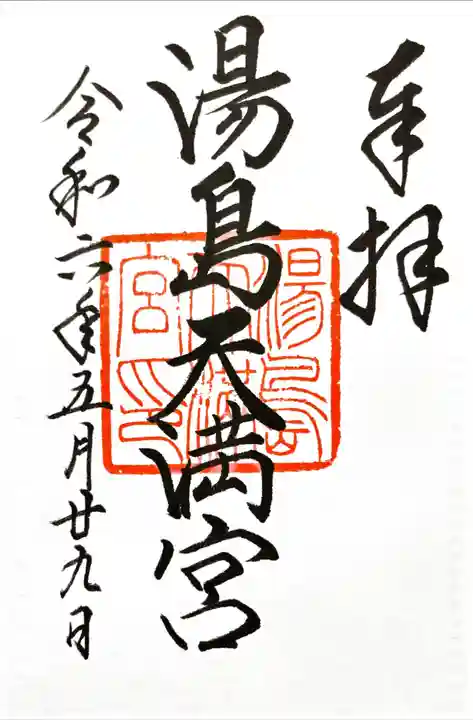 奉拝
湯島天満宮
湯島天満宮印
令和六年五月廿九日